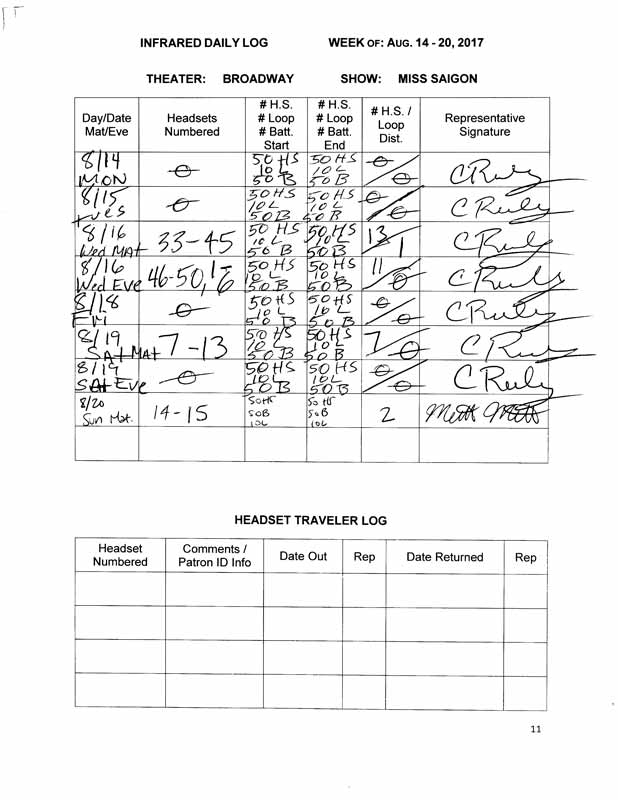 INFRARED DAILY LOG WEEK OF: AUG. 14 - 20, 2017
THEATER: BROADWAY SHOW: MISS SAIGON
Day/Date Mat/Eve Headsets Numbered # H.S. # Loop # Batt. Start # H.S. # Loop # Batt. End # H.S. / Loop Dist. Representative Signature
8/14 MON 0 50 HS 10 L 50 B 50 HS 10 L 50 B 0 / 0 C Ruly
8/15 tues 0 50 HS 10 L 50 B 50 HS 10 L 50 B 0 / 0 C Ruly
8/16 Wed MAt 33-45 50 HS 10 L 50 B 50 HS 10 L 50 B 13 / 1 C Ruly
8/16 Wed Eve 46-50, 1-6 50 HS 10 L 50 B 50 HS 10 L 50 B 11 / 0 C Ruly
8/18 FRI 0 50 HS 10 L 50 B 50 HS 10 L 50 B 0 / 0 C Ruly
8/19 SAt MAt 7-13 50 HS 10 L 50 B 50 HS 10 L 50 B 7 / 0 C Ruly
8/19 SAt Eve 0 50 HS 10 L 50 B 50 HS 10 L 50 B 0 / 0 C Ruly
8/20 Sun Mat. 14-15 50 HS 50B 10L 50 HS 50B 10L 2
HEADSET TRAVELER LOG
Headset Numbered Comments / Patron ID Info Date Out Rep Date Returned Rep
11